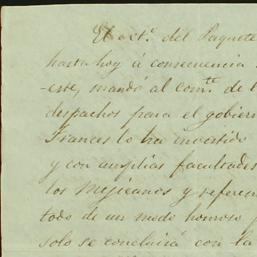 El act.l del Paquete
hasta hoy á consecuencia
este, mandó al com.te de l
despachos para el gobier
Frances lo ha invertido
y con amplias facultades
los Mejicanos y referen
todo de un modo honroso
solo se concluirá con la